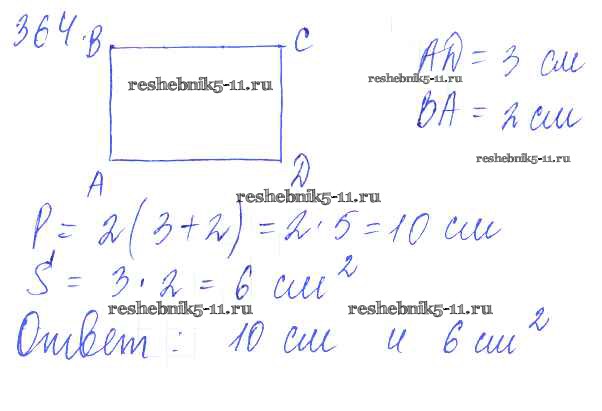 364.
B C
AD = 3 см
reshebnik5-11.ru
reshebnik5-11.ru
BA = 2 см
reshebnik5-11.ru
A D
reshebnik5-11.ru
P = 2(3+2) = 2·5 = 10 см
S = 3·2 = 6 см²
reshebnik5-11.ru reshebnik5-11.ru
Ответ: 10 см и 6 см²